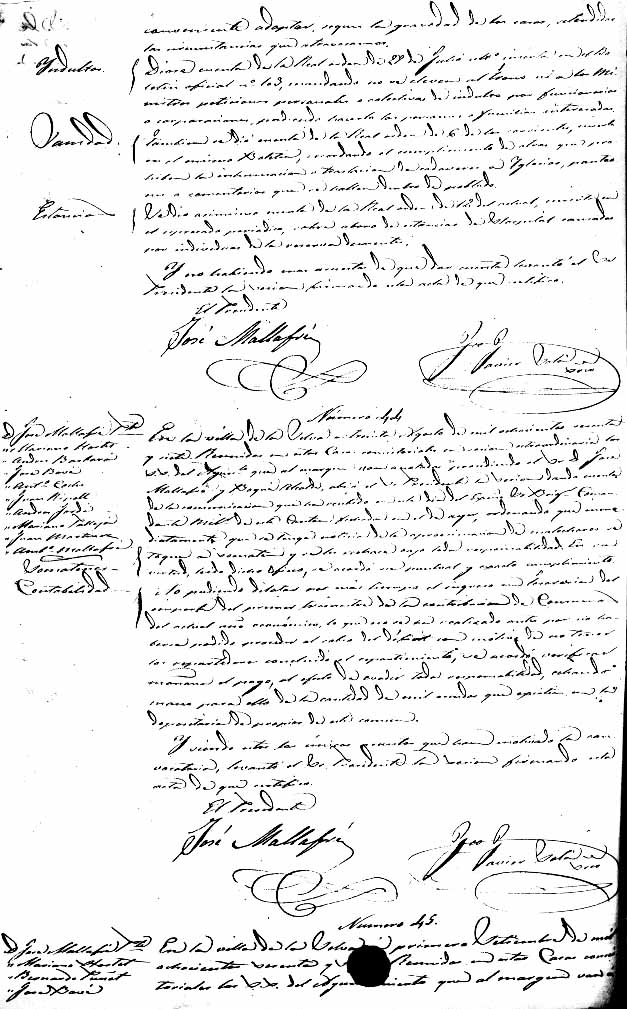 conveniente adoptar, segun la gravedad de los casos, atendidas
las circunstancias que atravesamos.
Yndultos.
Diose cuenta de la Real orden de 29 de Julio ulto. inserta en el Bo-
letin oficial nº 103, mandando no se eleven al Trono ni a los Mi-
nistros peticiones personales o colectivas de indulto por funcionarios
o corporaciones, pudiendo hacerlo las personas o familias interesadas.
Sanidad.
Tambien se dió cuenta de la Real orden de 6 de los corrientes, inserta
en el mismo Boletin, recordando el cumplimiento de otras que pro-
hiben la inhumacion o traslacion de cadaveres a Yglesias, panteo-
nes o cementerios que se hallen dentro de poblado.
Estancias
Se dio asimismo cuenta de la Real orden de 12 del actual, inserta en
el espresado periodico, sobre abono de estancias de Hospital causadas
por individuos de la reserva
Y no habiendo mas asuntos de que dar cuenta levantó el Sr.
Presidente la sesion firmando esta acta de que certifico.
El Presidente
José Mallafré
Javier
Numero 44
D. Jose Mallafré Pte
" Mariano Hortet
" Andres Barbará
" Jose Bové
" Juan Ripoll
" Mariano
" Juan Martinez
" Antº Mallafré
Somatenes
Contabilidad
En la villa de la Selva a treinta Agosto de mil ochocientos setenta
y siete Reunidos en estas Casas consistoriales en sesion extraordinaria los
SS. del Ayuntº que al margen van anotados presidiendo el Sr. D. Jose
Mallafré y Bogué Alcalde, abrió el Sr. Presidente la sesion dando cuenta
de la comunicacion que ha recibido en este dia del Sr. Brigr. Coman-
dante Mil. de este Canton fechada en el de ayer, ordenando que inme-
diatamente que se tenga noticia de la aproximacion de malhechores se
toque a somaten y se les rechace bajo toda responsabilidad. En su
virtud, todo dicho se acordó su puntual y exacto cumplimiento.
No pudiendo dilatar por mas tiempo el ingreso en Tesoreria del
importe del primer trimestre de la contribucion de Consumos
del actual año económico, lo que no se ha realizado antes por no ha-
berse podido proceder al cobro del con motivo de no tener
los repartidores concluido el repartimiento, se acordó verificar
mañana el pago, al objeto de evadir toda responsabilidad, echando
mano para ello de la cantidad de mil escudos que existen en la
depositaria de propios de este comun.
Y siendo estos los únicos asuntos que han motivado la con-
vocatoria, levantó el Sr. Presidente la sesion firmando esta
acta de que certifico.
El Presidente
José Mallafré
Javier
Numero 45.
D. Jose Mallafré Pte
" Mariano Hortet
" Bernardo
" Jose Bové
En la villa de la Selva a primero Setiembre de mil
ochocientos setenta y Reunidos en estas Casas consis-
toriales los SS. del Ayuntamiento que al margen van a-